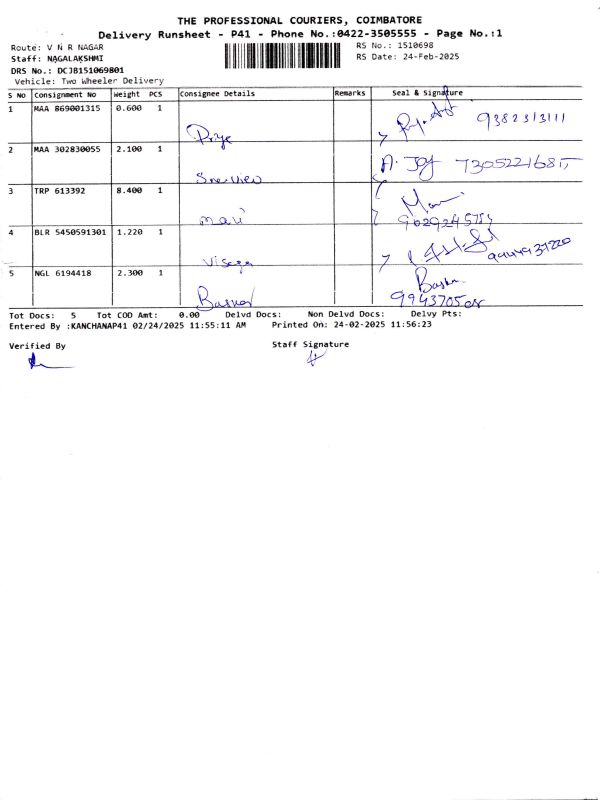 THE PROFESSIONAL COURIERS, COIMBATORE
Delivery Runsheet - P41 - Phone No.:0422-3505555 - Page No.:1
Route: V N R NAGAR RS No.: 1510698
Staff: NAGALAKSHMI RS Date: 24-Feb-2025
DRS No.: DCJB151069801
Vehicle: Two Wheeler Delivery
S No Consignment No Weight PCS Consignee Details Remarks Seal & Signature
1 MAA 869001315 0.600 1
Priya 9382313111
2 MAA 302830055 2.100 1
A. Joy
3 TRP 613392 8.400 1
mani
4 BLR 5450591301 1.220 1
5 NGL 6194418 2.300 1
Tot Docs: 5 Tot COD Amt: 0.00 Delvd Docs: Non Delvd Docs: Delvy Pts:
Entered By :KANCHANAP41 02/24/2025 11:55:11 AM Printed On: 24-02-2025 11:56:23
Verified By Staff Signature